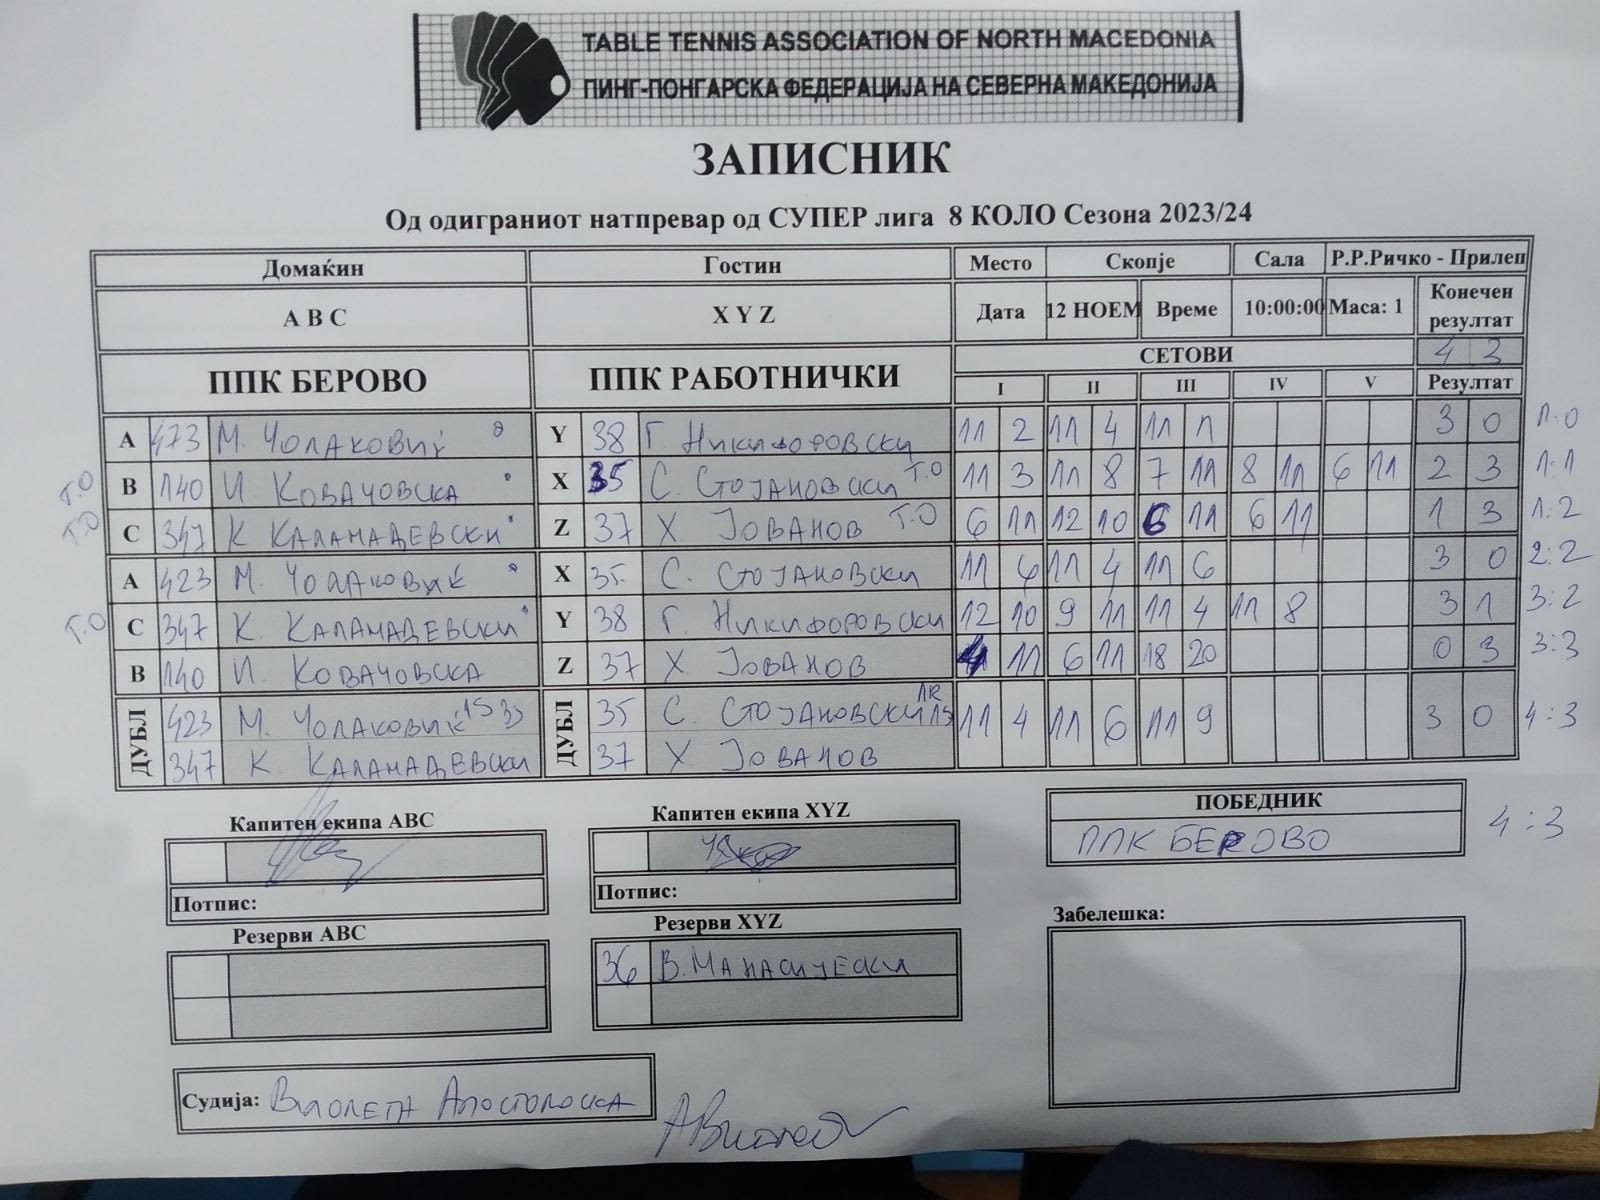 TABLE TENNIS ASSOCIATION OF NORTH MACEDONIA
ПИНГ-ПОНГАРСКА ФЕДЕРАЦИЈА НА СЕВЕРНА МАКЕДОНИЈА
ЗАПИСНИК
Од одиграниот натпревар од СУПЕР лига 8 КОЛО Сезона 2023/24
Домаќин Гостин Место Скопје Сала Р.Р.Ричко - Прилеп
A B C X Y Z Дата 12 НОЕМ Време 10:00:00 Маса: 1 Конечен резултат
4 3
ППК БЕРОВО ППК РАБОТНИЧКИ СЕТОВИ
I II III IV V Резултат
A 473 М. Чолаковиќ Y 38 Г. Никифоровски 11 2 11 4 11 3 0 1:0
Т.О B 140 И. Ковачовска X 35 С. Стојановски Т.О 11 3 11 8 7 11 8 11 6 11 2 3 1:1
Т.О C 347 К Каламадевски Z 37 Х Јованов Т.О 6 11 12 10 6 11 6 11 1 3 1:2
A 423 М. Чолаковиќ X 35. С. Стојановски 11 6 11 4 11 6 3 0 2:2
Т.О C 347 К. Каламадевски Y 38 Г. Никифоровски 12 10 9 11 11 4 11 8 3 1 3:2
B 140 И. Ковачовска Z 37 Х Јованов 4 11 6 11 18 20 0 3 3:3
ДУБЛ 423 М. Чолаковиќ ДУБЛ 35 С. Стојановски 11 4 11 6 11 9 3 0 4:3
347 К. Каламадевски 37 Х Јованов
Капитен екипа ABC Капитен екипа XYZ ПОБЕДНИК
ППК БЕРОВО 4:3
Потпис: Потпис:
Резерви ABC Резерви XYZ Забелешка:
36 В. Манасијески
Судија: Виолета Апостолоска